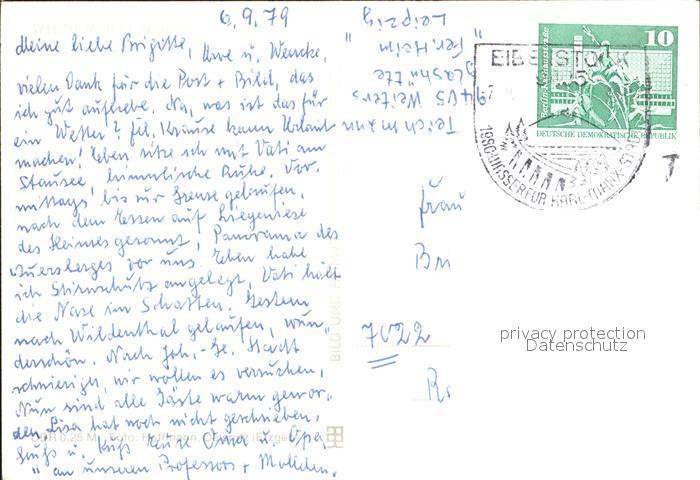 6.9.79
Meine liebe Brigitte, Uwe u. Wencke,
vielen Dank für die Post + Bild, das
ich gut aufhebe. Na, was ist das für
ein Wetter? Frl. Krause kann Urlaub
machen! Eben sitze ich mit Vati am
Stausee, himmlische Ruhe. Vor-
mittags bis zur Grenze gelaufen,
nach dem Essen auf Liegewiese
des Heimes gesonnt, Panorama des
Auersberges vor uns. Eben habe
ich Stirnschutz angelegt, Vati hält
die Nase im Schatten. Gestern
nach Wildenthal gelaufen, wun-
derschön. Nach Joh.-Ge. Stadt
schwierig, wir wollen es versuchen.
Nun sind alle Gäste warm gewor-
den. Lisa hat noch nicht geschrieben.
Gruß u. Kuß Eure Oma u. Opa
" an unseren Professor +
Teichmann
9405 Weiters-
glashütte
"Fer. Heim
Leipzig"
10
DEUTSCHE DEMOKRATISCHE REPUBLIK
EIBENSTOCK
WASSER FÜR KARL-MARX-STADT
Frau
7022
privacy protection
Datenschutz
BILD UND
DDR 0,25 M Foto: